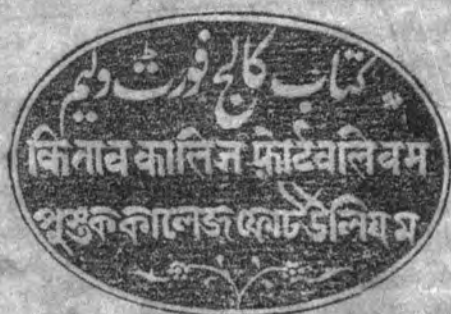 کتاب کالج فورٹ ولیم
किताव कालिज फ़ोर्टवलिवम
পুস্তক কালেজ ফোর্ট উলিয়ম